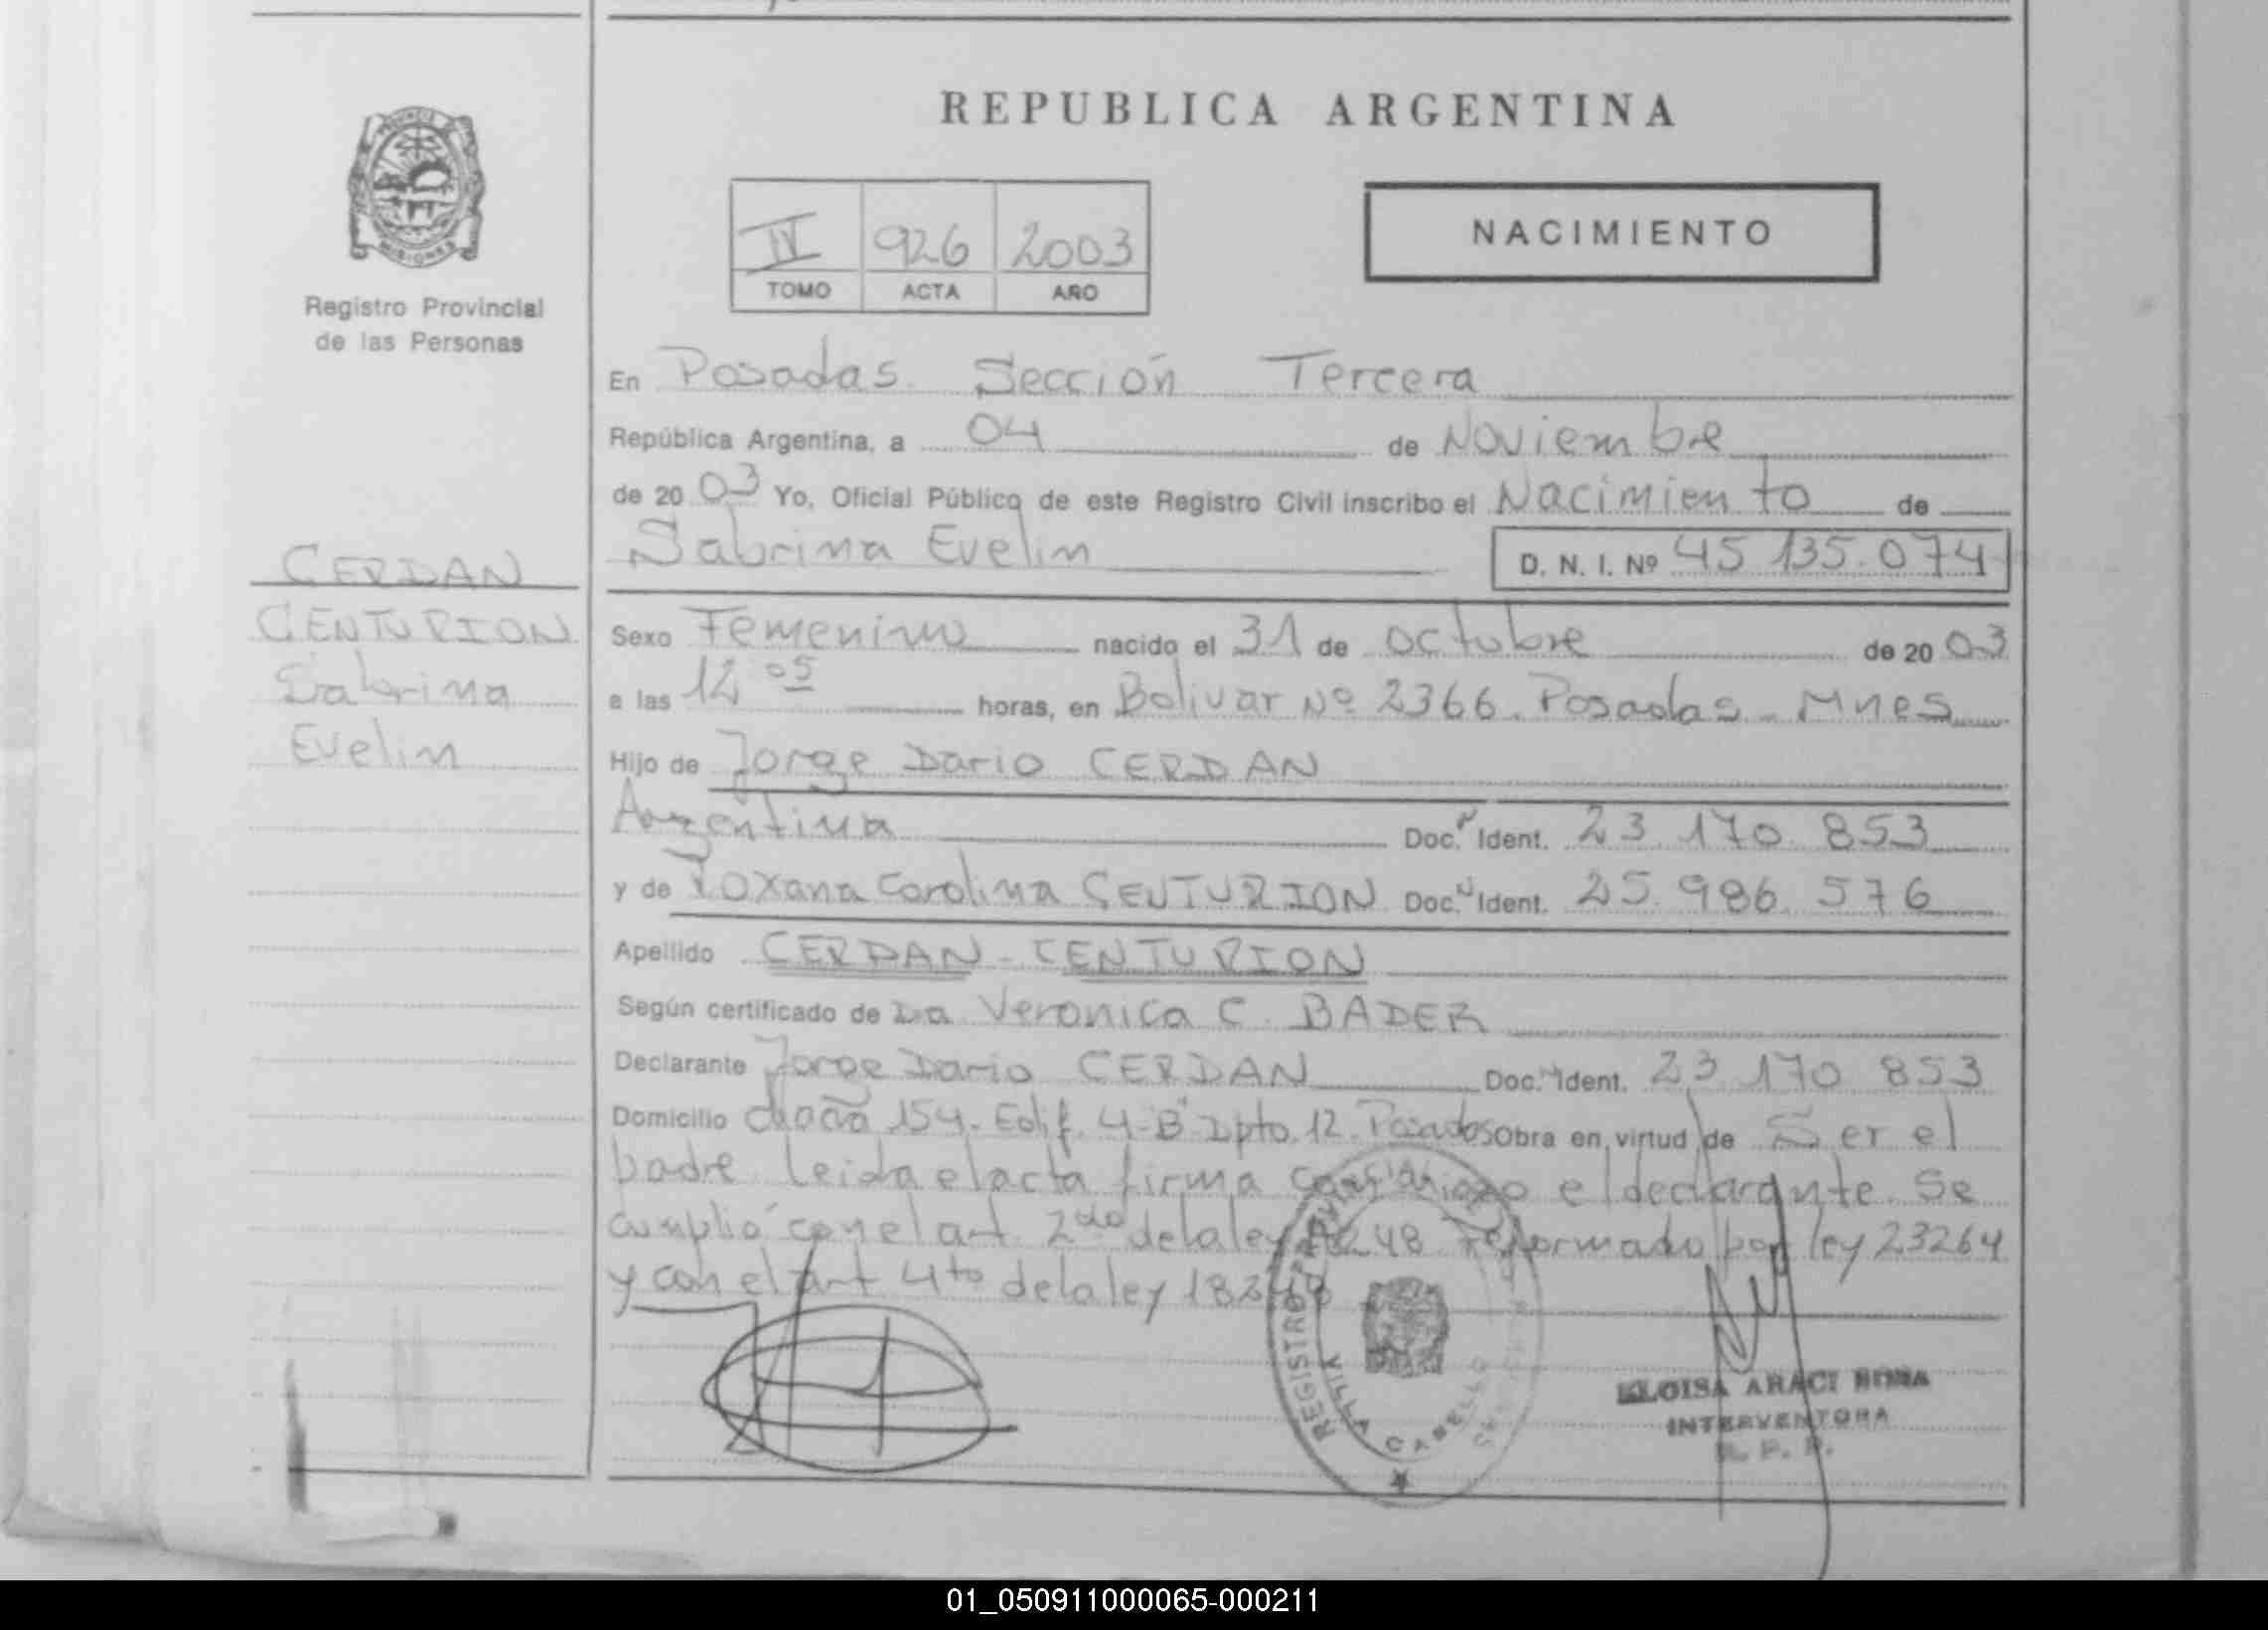 REPUBLICA ARGENTINA
PROVINCIA DE MISIONES
Registro Provincial
de las Personas
IV 926 2003
TOMO ACTA AÑO
NACIMIENTO
En Posadas Sección Tercera
República Argentina, a 04 de Noviembre
de 2003 Yo, Oficial Público de este Registro Civil inscribo el Nacimiento de
Sabrina Evelin D. N. I. Nº 45 135.074
CERDAN
CENTURION
Sabrina
Evelin
Sexo Femenino nacido el 31 de octubre de 2003
a las 12 05 horas, en Bolivar Nº 2366. Posadas - Mnes
Hijo de Jorge Dario CERDAN
Argentina Doc. Ident. 23 170 853
y de Roxana Carolina CENTURION Doc. Ident. 25 986 576
Apellido CERDAN - CENTURION
Según certificado de Veronica C. BADER
Declarante Jorge Dario CERDAN Doc. Ident. 23 170 853
Domicilio 154 - Edif. 4-B Dpto 12. Posadas Obra en virtud de Ser el
padre leida el acta firma conmigo el declarante. Se
cumplió con el art 2do de la ley 18248 reformado por ley 23264
y con el art 4to de la ley 18248
REGISTRO PROVINCIAL
VILLA CABELLO
ELOISA ARACI
INTERVENTORA
R. P. P.
01_050911000065-000211